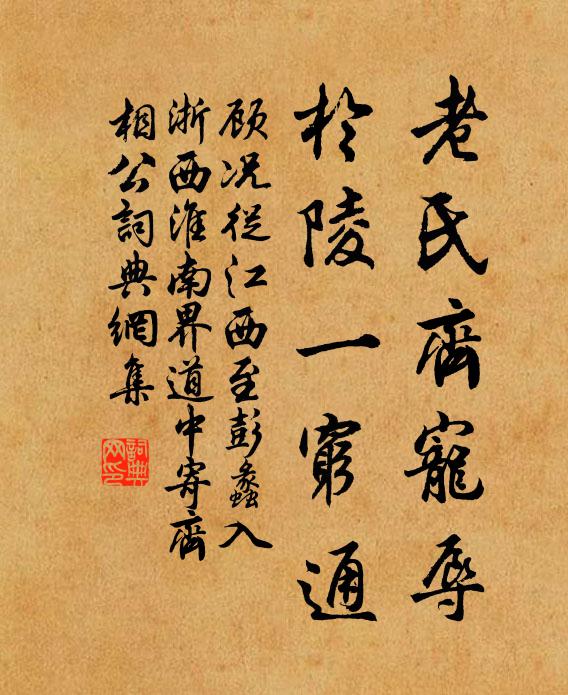 老氏齊寵辱
於陵一窮通
顧况從江西至彭蠡入
浙西淮南界道中寄齊
相公詞典網集
詞典
网印